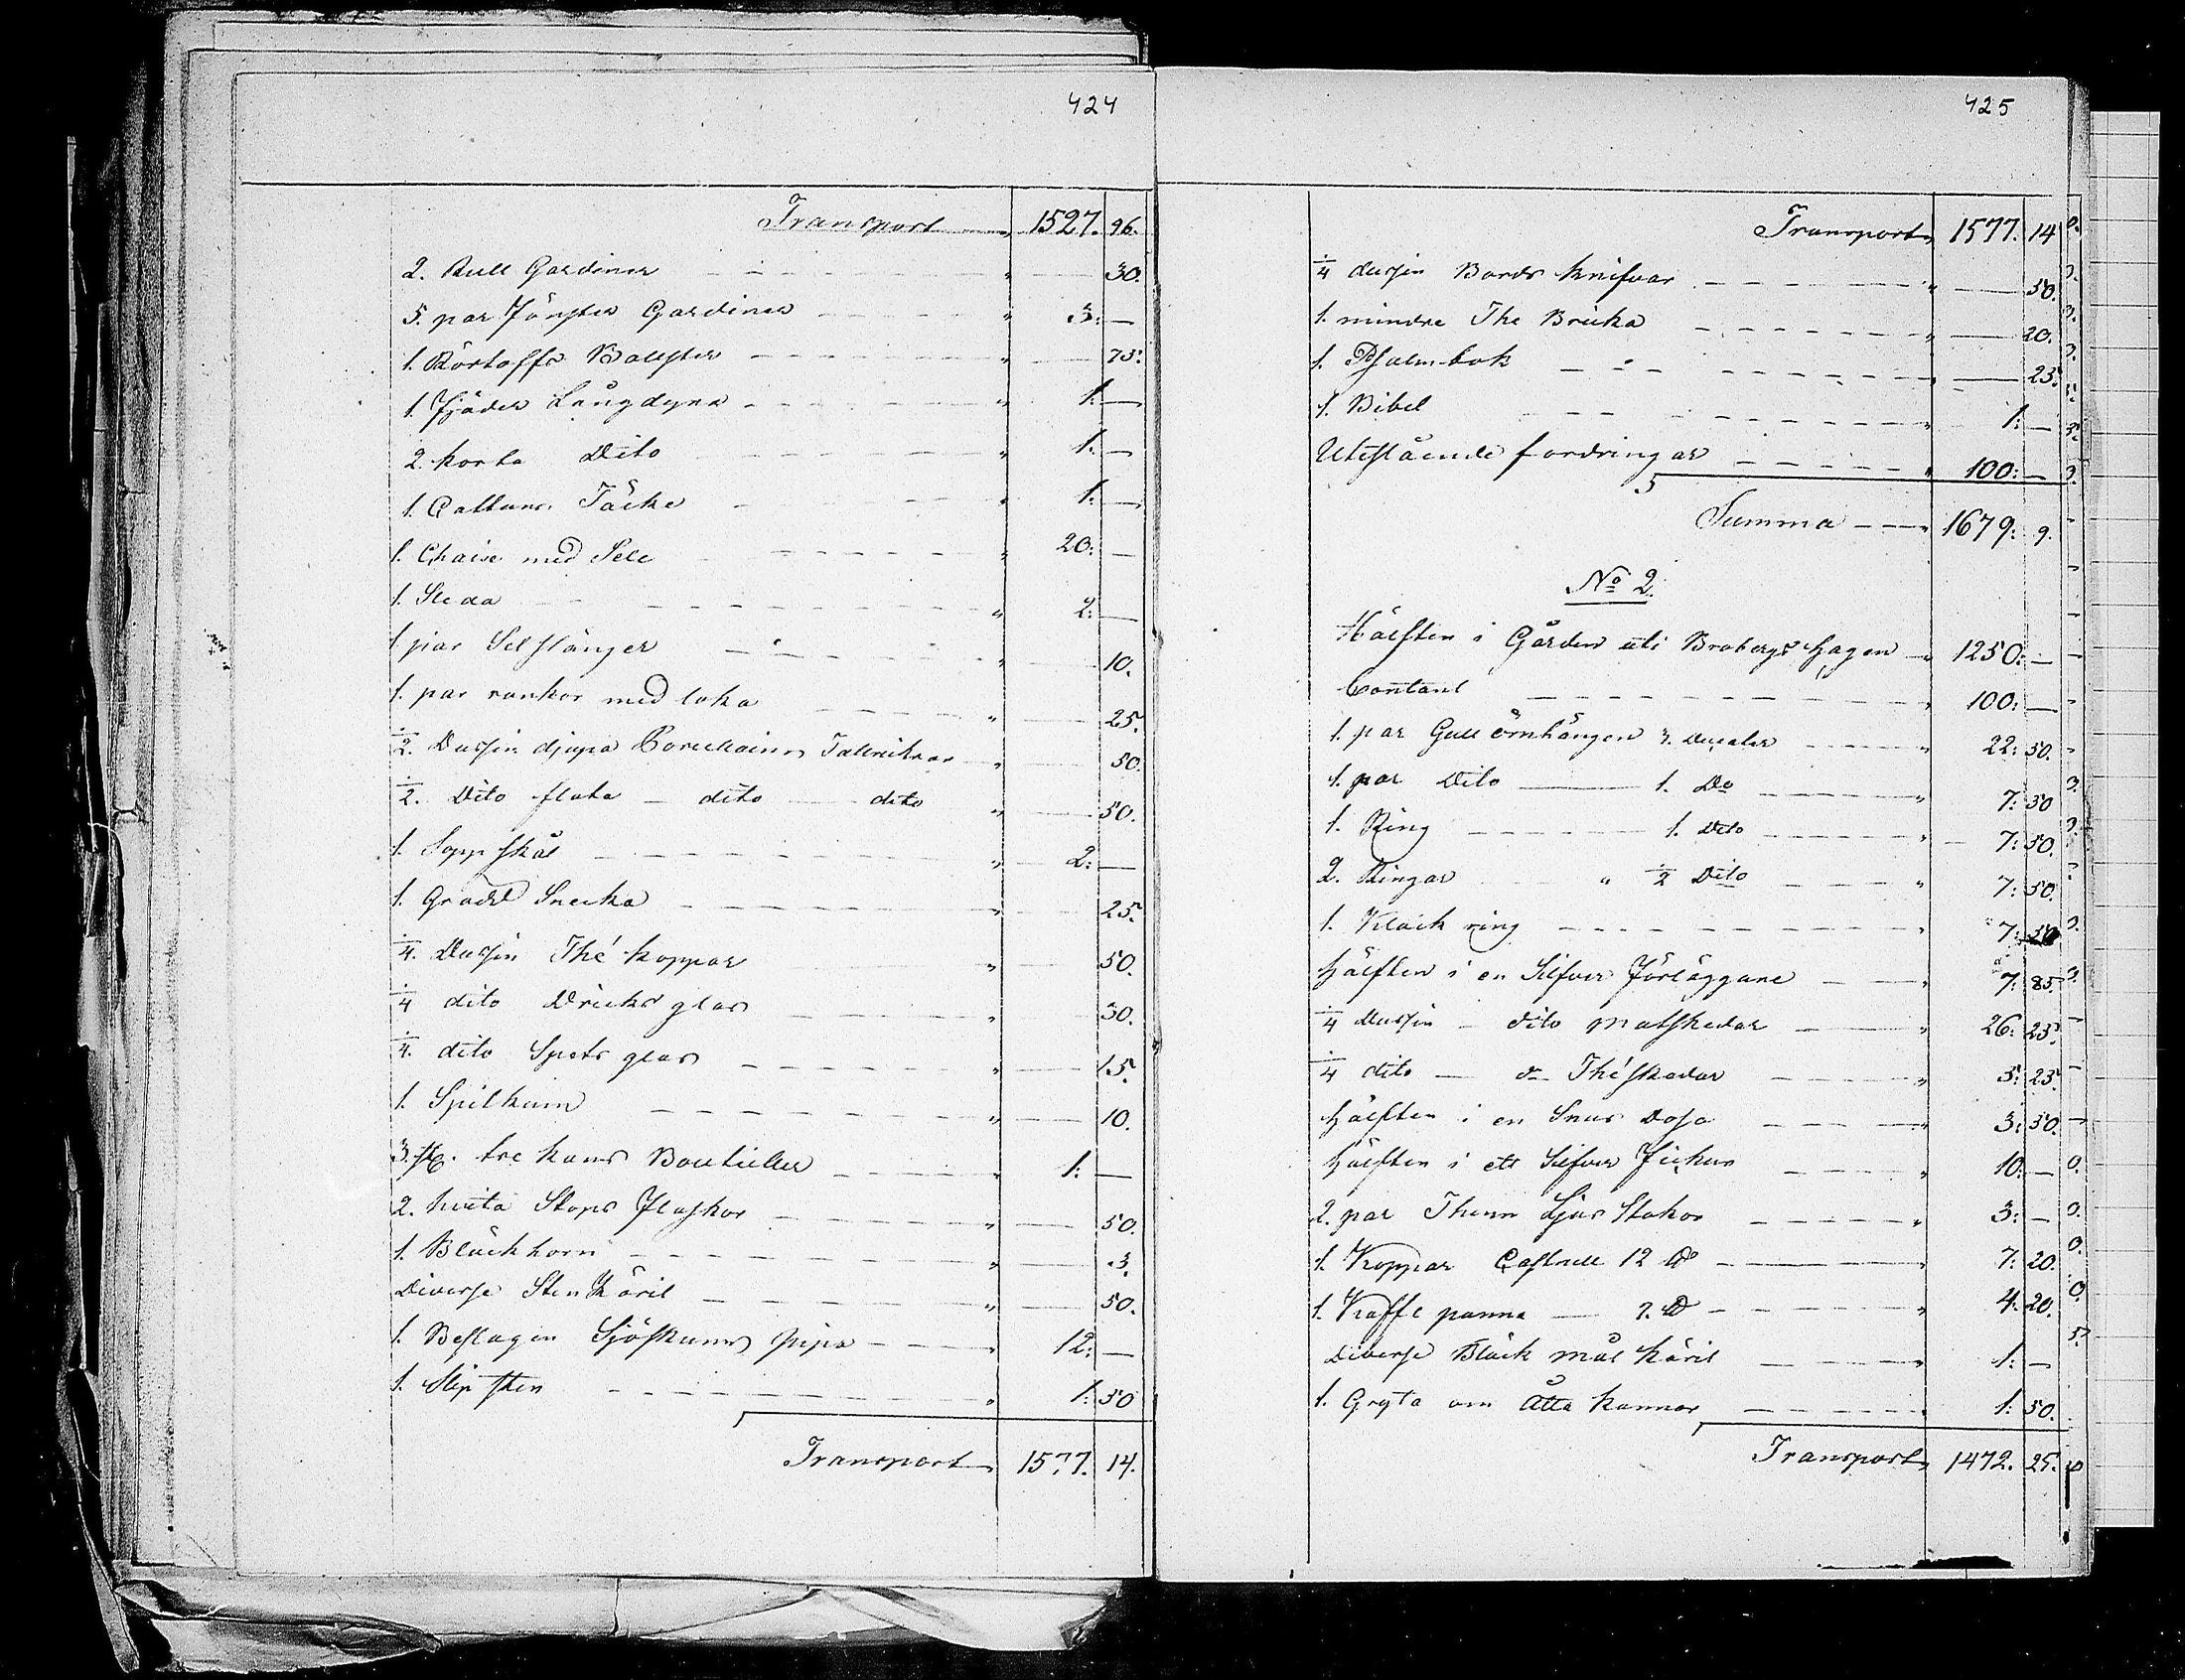 424
Transport " 1527. 96.
2. Rull Gardiner " 30.
5. par Fönster Gardiner " 3: —
1. Körtoffs Bolster " 75:
1. Fjäder Långdyna " 1: —
2. korta Dito " 1: —
1. Cattuns Täcke " 1: —
1. Chaise med Sele " 20: —
1. Sleda " 2: —
1 par Selstänger " 10.
1. par rankor med loka " 25.
1/2. Dussin djupa Porcellains Tallrikar " 50.
1/2. Dito flata — dito — dito " 50.
1. Soppskål " 2: —
1. Grädd Snecka " 25.
1/4. Dussin Thé koppar " 50.
1/4 dito Dricks glas " 30.
1/4. dito Spets glas " 15.
1. Spilkum " 10.
3. st. tre kans Bouteiller " 1: —
2. hvita Stops Flaskor " 50.
1. Bläckhorn " 3.
Diverse Sten Käril " 50.
1. Beslagen Sjöskums pipa " 12: —
1. Slipsten " 1: 50
Transport " 1577. 14.
425
Transport " 1577. 14
1/4 dussin Bords knifvar " 50.
1. mindre The Bricka " 20.
1. Psalmbok " 25.
1. Bibel " 1: —
Utestående fordringar " 100: —
Summa " 1679: 9.
No 2.
Hälften i Gården uti Brobergs Hagen " 1250: —
Contant " 100: —
1. par Gull örnhängen 3. Ducater " 22: 50.
1. par Dito — 1. Do " 7: 50
1. Ring 1. Dito " 7: 50.
2. Ringar " 1/2 Dito " 7: 50.
1. Kläck ring " 7: 50
Hälften i en Silfver Förläggare " 7: 85.
1/4 Dussin — dito matskedar " 26: 25.
1/4 dito — do Théskedar " 5: 25.
Hälften i en Snus Dosa " 3: 50.
Hälften i ett Silfver Fickur " 10: —
2. par Thenn Ljus Stakar " 3: —
1. Koppar Castrull 12 ℔ " 7: 20.
1. Kaffe panna — 7. ℔ " 4: 20.
Diverse Bläck mål käril " 1: —
1. Gryta om Åtta kannor " 1: 50.
Transport " 1472. 25.